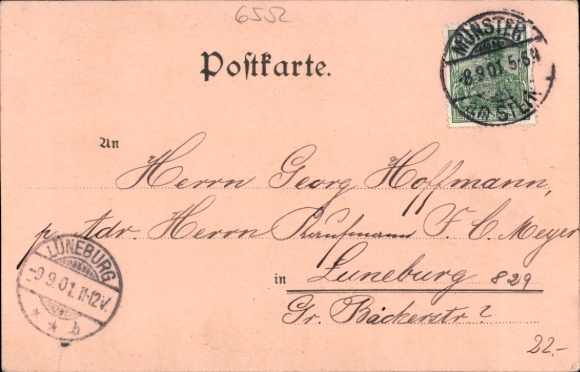 6552
Postkarte.
MÜNSTER
8.9.01. 5-6N
STEIN
An
Herrn Georg Hoffmann,
p. Adr. Herrn Kaufmann F. C. Meyer
LÜNEBURG
-9.9.01. 11-12V.
* * b
in Luneburg 829
Gr. Bäckerstr. 2
22.-